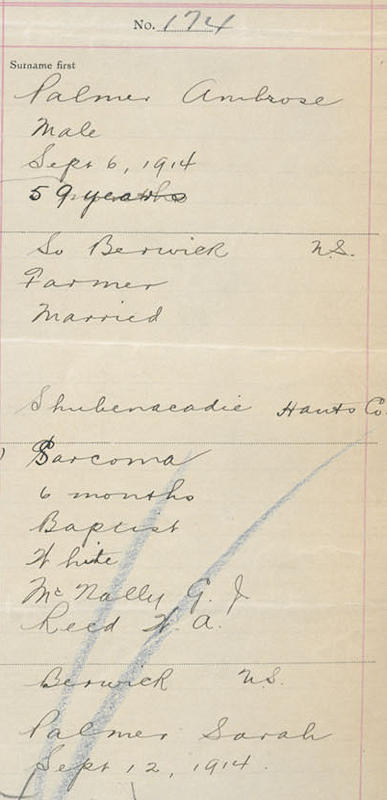 No. 174
Surname first
Palmer Ambrose
Male
Sept 6, 1914
59 years
So Berwick N.S.
Farmer
Married
Shubenacadie Hants Co
Sarcoma
6 months
Baptist
White
McNally G. J
Reed W. A.
Berwick N.S.
Palmer Sarah
Sept 12, 1914.